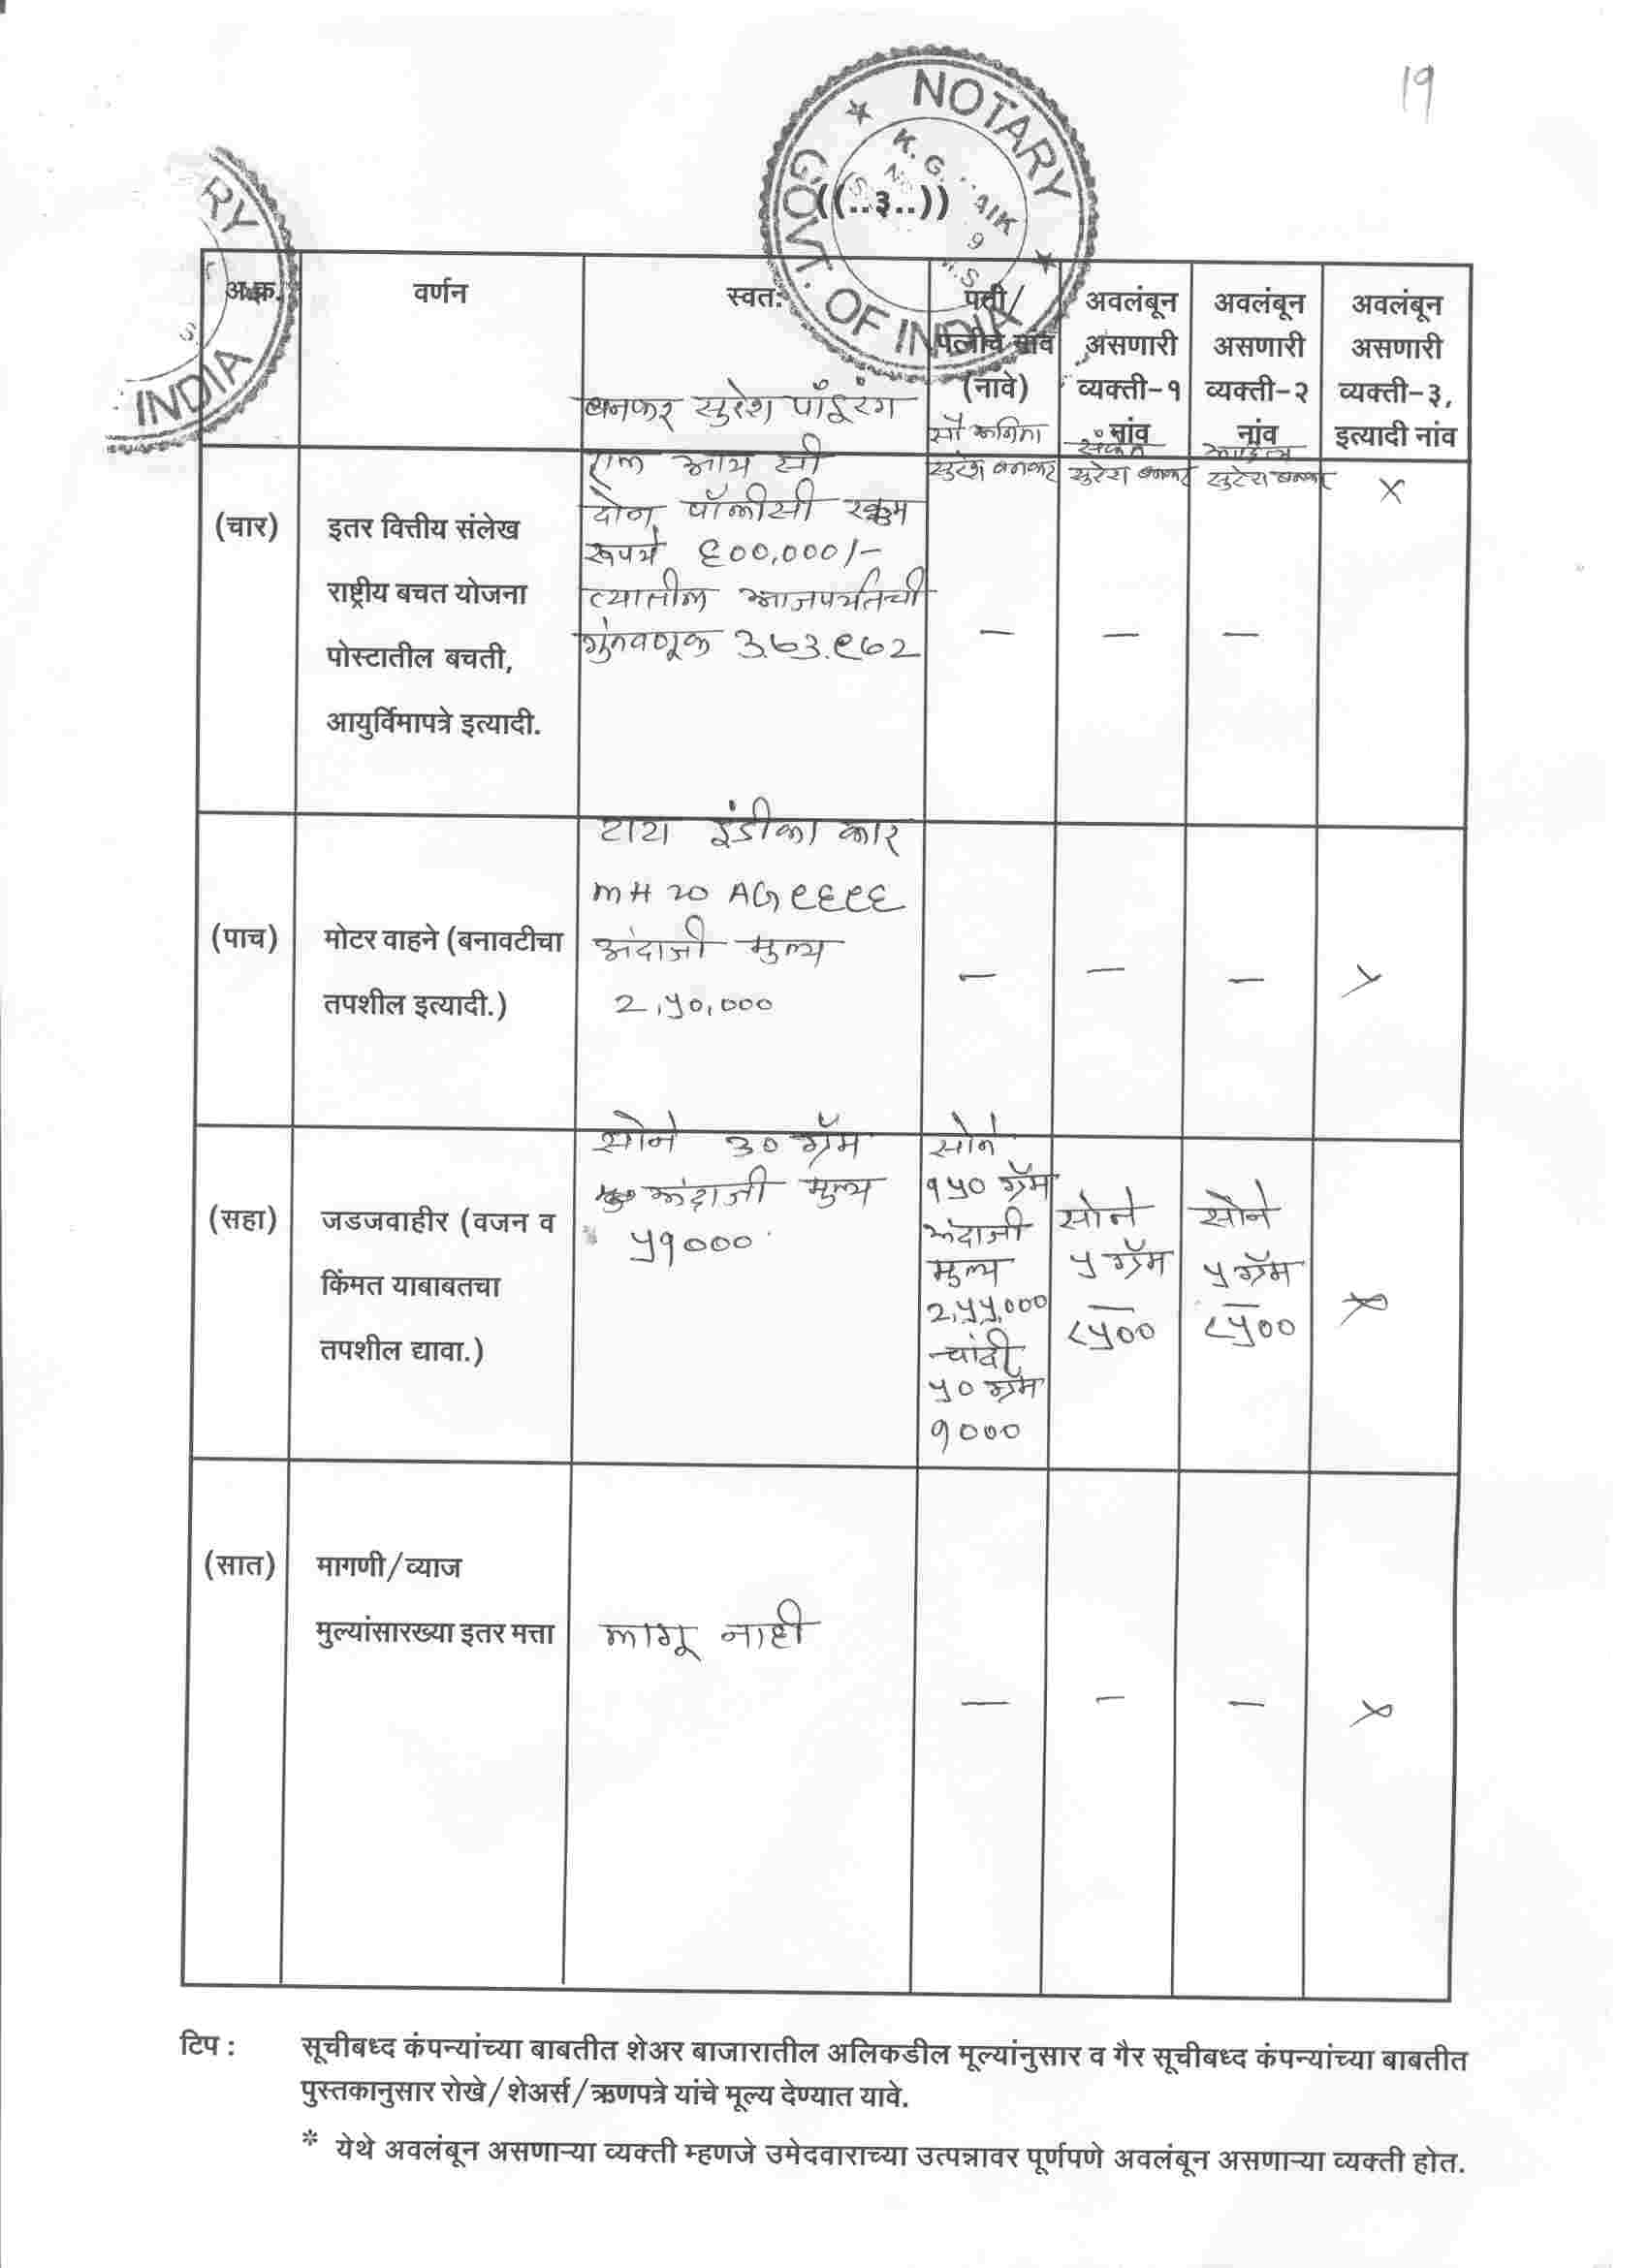 19
NOTARY
GOVT. OF INDIA
K. G.
RY
INDIA
((..३..))
अ.क्र.
वर्णन
स्वत:
बनकर सुरेश पांडूरंग
पती/
पत्नीचे नांव
(नावे)
सौ कविता
सुरेश बनकर
अवलंबून
असणारी
व्यक्ती-१
नांव
संकेत
सुरेश बनकर
अवलंबून
असणारी
व्यक्ती-२
नांव
सुरेश बनकर
अवलंबून
असणारी
व्यक्ती-३,
इत्यादी नांव
(चार)
इतर वित्तीय संलेख
राष्ट्रीय बचत योजना
पोस्टातील बचती,
आयुर्विमापत्रे इत्यादी.
एल आय सी
दोन पॉलीसी रक्कम
रूपये ६००,०००/-
त्यातील आजपर्यंतची
गुंतवणूक ३.७३.९७२
—
—
—
x
(पाच)
मोटर वाहने (बनावटीचा
तपशील इत्यादी.)
टाटा इंडीका कार
MH 20 AG ९६९६
अंदाजी मुल्य
२,५०,०००
—
—
—
x
(सहा)
जडजवाहीर (वजन व
किंमत याबाबतचा
तपशील द्यावा.)
सोने ३० ग्रॅम
अंदाजी मुल्य
५१०००
सोने
१५० ग्रॅम
अंदाजी
मुल्य
२,५५,०००
चांदी
५० ग्रॅम
१०००
सोने
५ ग्रॅम
८५००
सोने
५ ग्रॅम
८५००
x
(सात)
मागणी/व्याज
मुल्यांसारख्या इतर मत्ता
लागू नाही
—
—
—
x
टिप :
सूचीबध्द कंपन्यांच्या बाबतीत शेअर बाजारातील अलिकडील मूल्यांनुसार व गैर सूचीबध्द कंपन्यांच्या बाबतीत
पुस्तकानुसार रोखे/शेअर्स/ऋणपत्रे यांचे मूल्य देण्यात यावे.
* येथे अवलंबून असणाऱ्या व्यक्ती म्हणजे उमेदवाराच्या उत्पन्नावर पूर्णपणे अवलंबून असणाऱ्या व्यक्ती होत.